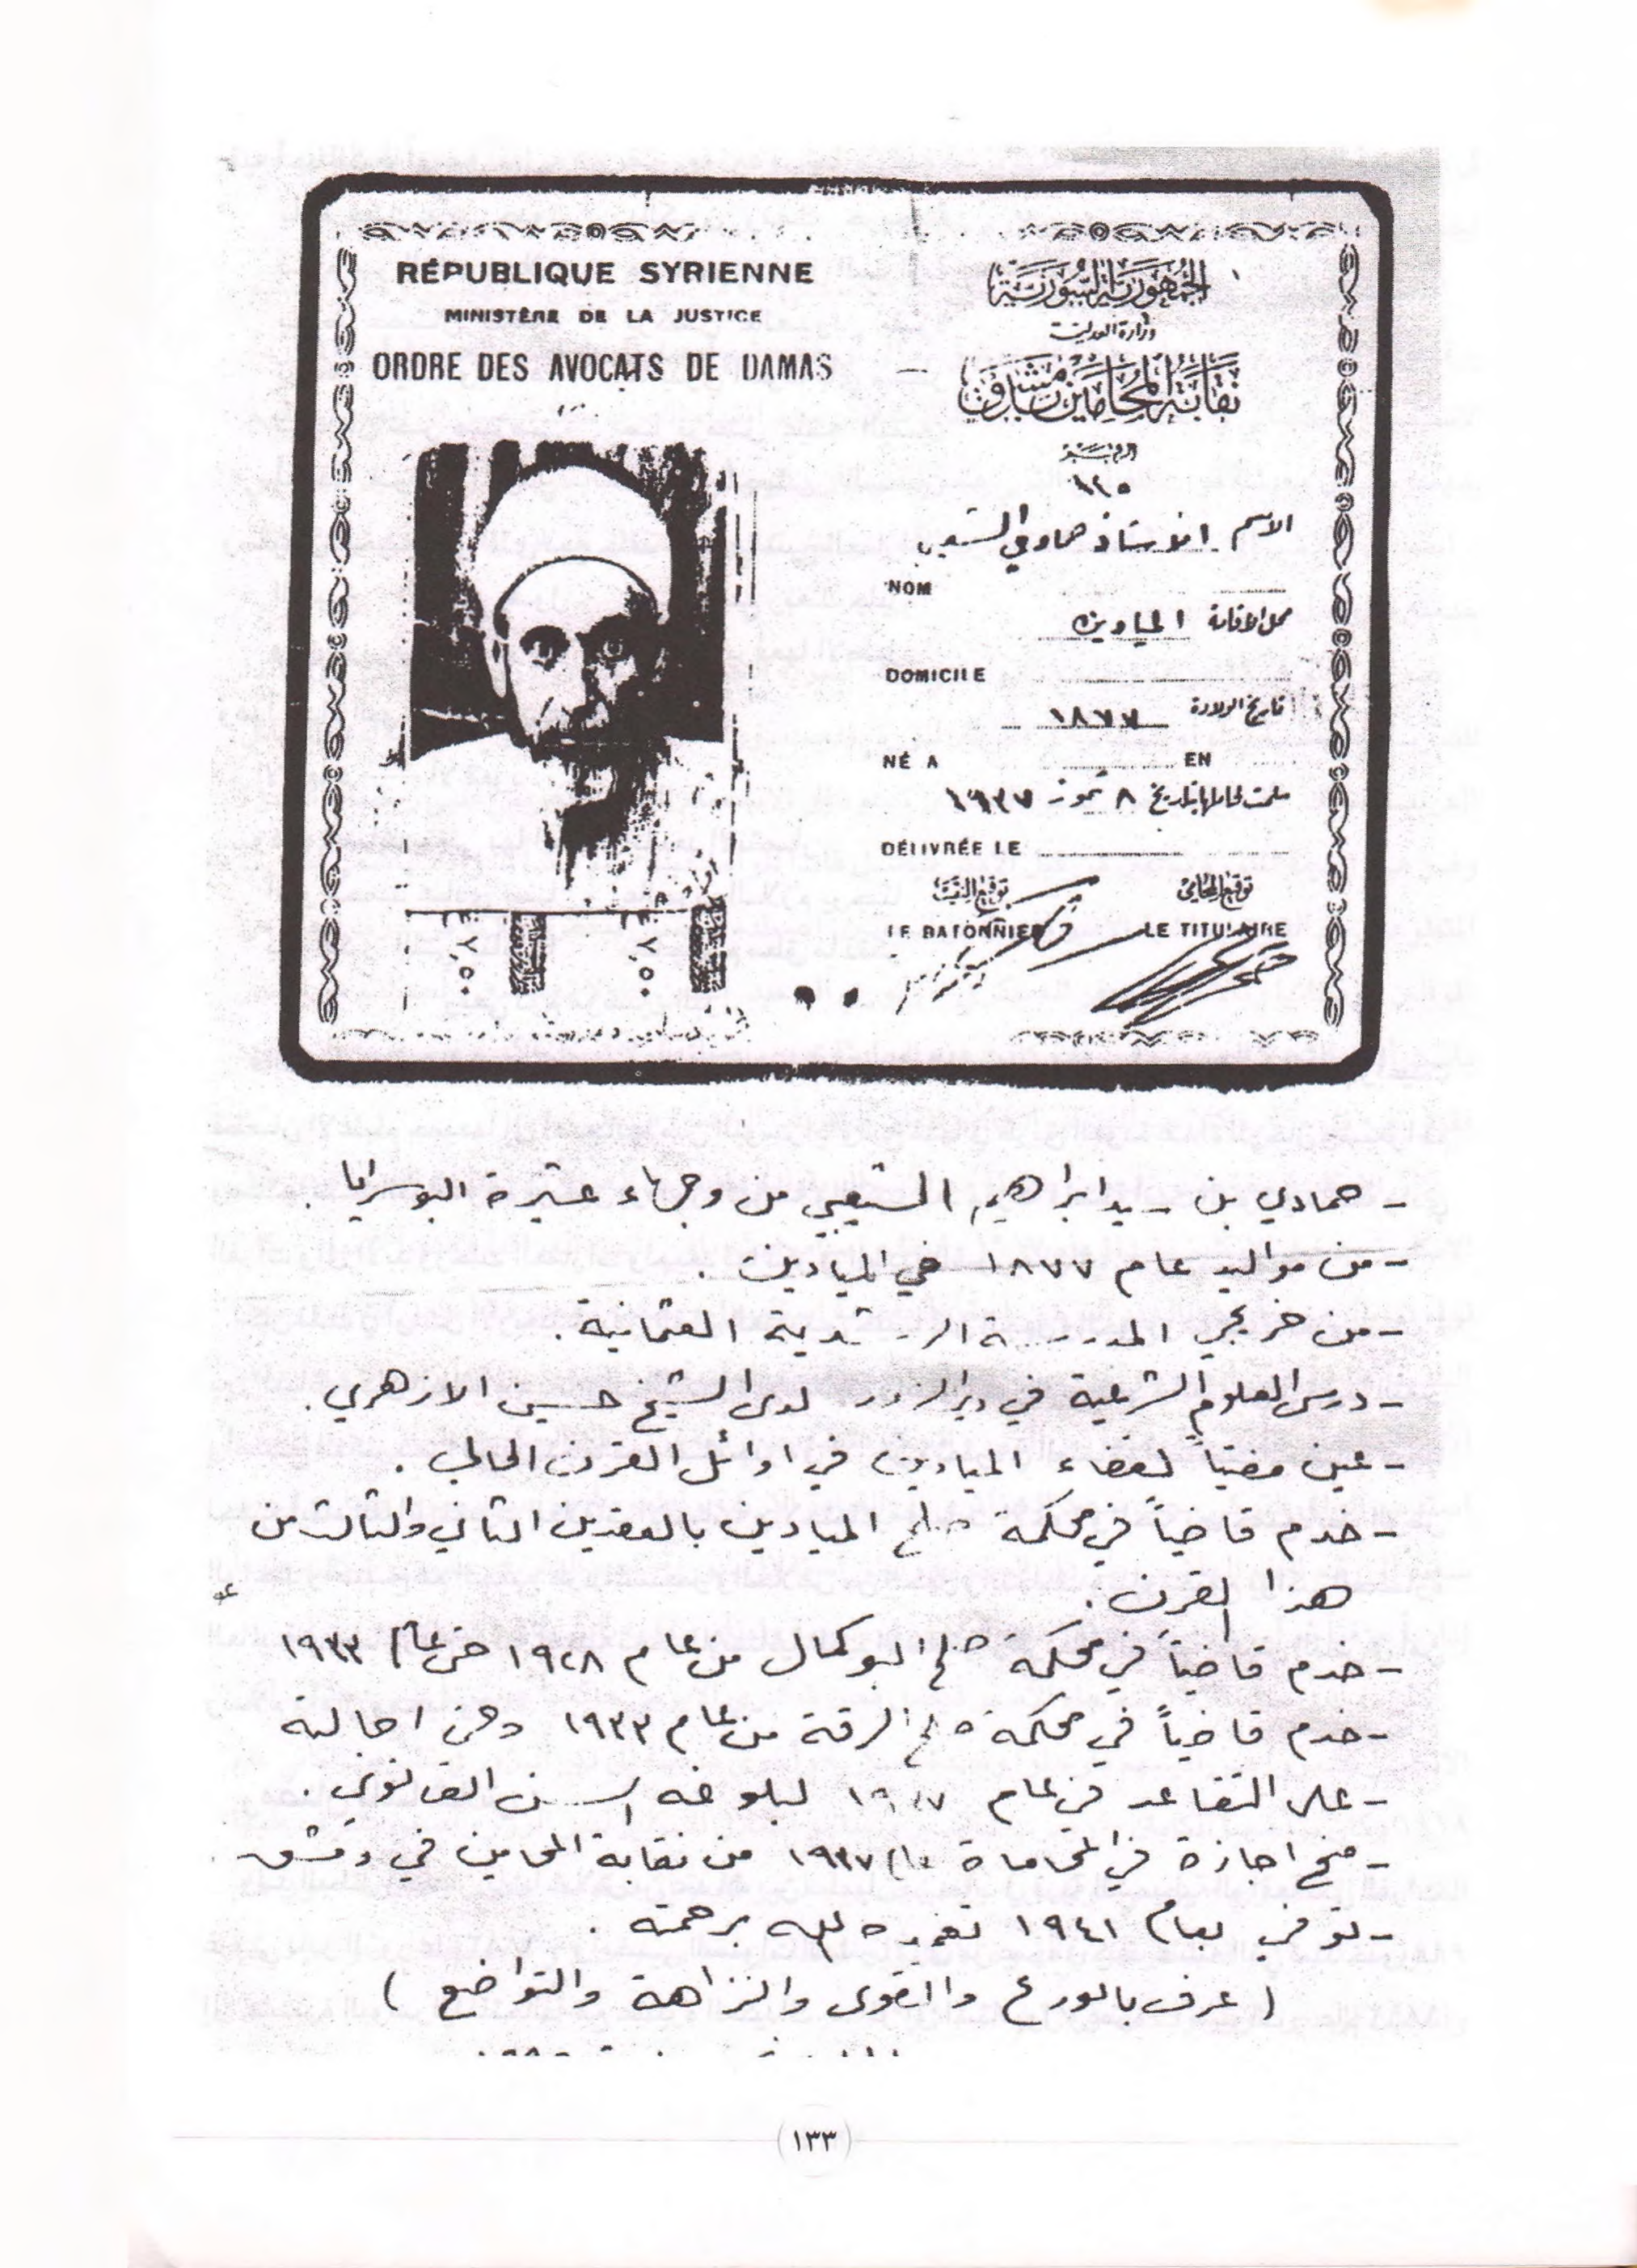 RÉPUBLIQUE SYRIENNE
MINISTÈRE DE LA JUSTICE
ORDRE DES AVOCATS DE DAMAS
الجمهورية السورية
وزارة العدلية
نقابة المحامين بدمشق
الاسم الاستاذ حمادي الشعيبي
NOM
محل الاقامة الميادين
DOMICILE
تاريخ الولادة ١٨٧٧
NÉ A EN
سلمت لحاملها بتاريخ ٨ تموز ١٩٣٧
DÉLIVRÉE LE
توقيع المحامي
توقيع النقيب
LE BATONNIER
LE TITULAIRE
٣٧,٥٠ ٣٧,٥٠
- حمادي بن سيد ابراهيم الشعيبي من وجهاء عشيرة البوسرايا .
- من مواليد عام ١٨٧٧ في الميادين .
- من خريجي المدرسة الرشدية العثمانية .
- درس العلوم الشرعية في دير الزور لدى الشيخ حسين الازهري .
- عين مفتياً لقضاء الميادين في اوائل القرن الحالي .
- خدم قاضياً في محكمة صلح الميادين بالعقدين الثاني والثالث من
هذا القرن .
- خدم قاضياً في محكمة صلح البوكمال من عام ١٩٢٨ حتى عام ١٩٣٣
- خدم قاضياً في محكمة صلح الرقة من عام ١٩٣٣ وحتى احالته
- على التقاعد في عام ١٩٣٧ لبلوغه السن القانوني .
- منح اجازة في المحاماة عام ١٩٣٧ من نقابة المحامين في دمشق .
- توفي بعام ١٩٤١ تغمده الله برحمته .
( عرف بالورع والتقوى والنزاهة والتواضع )
(١٣٣)